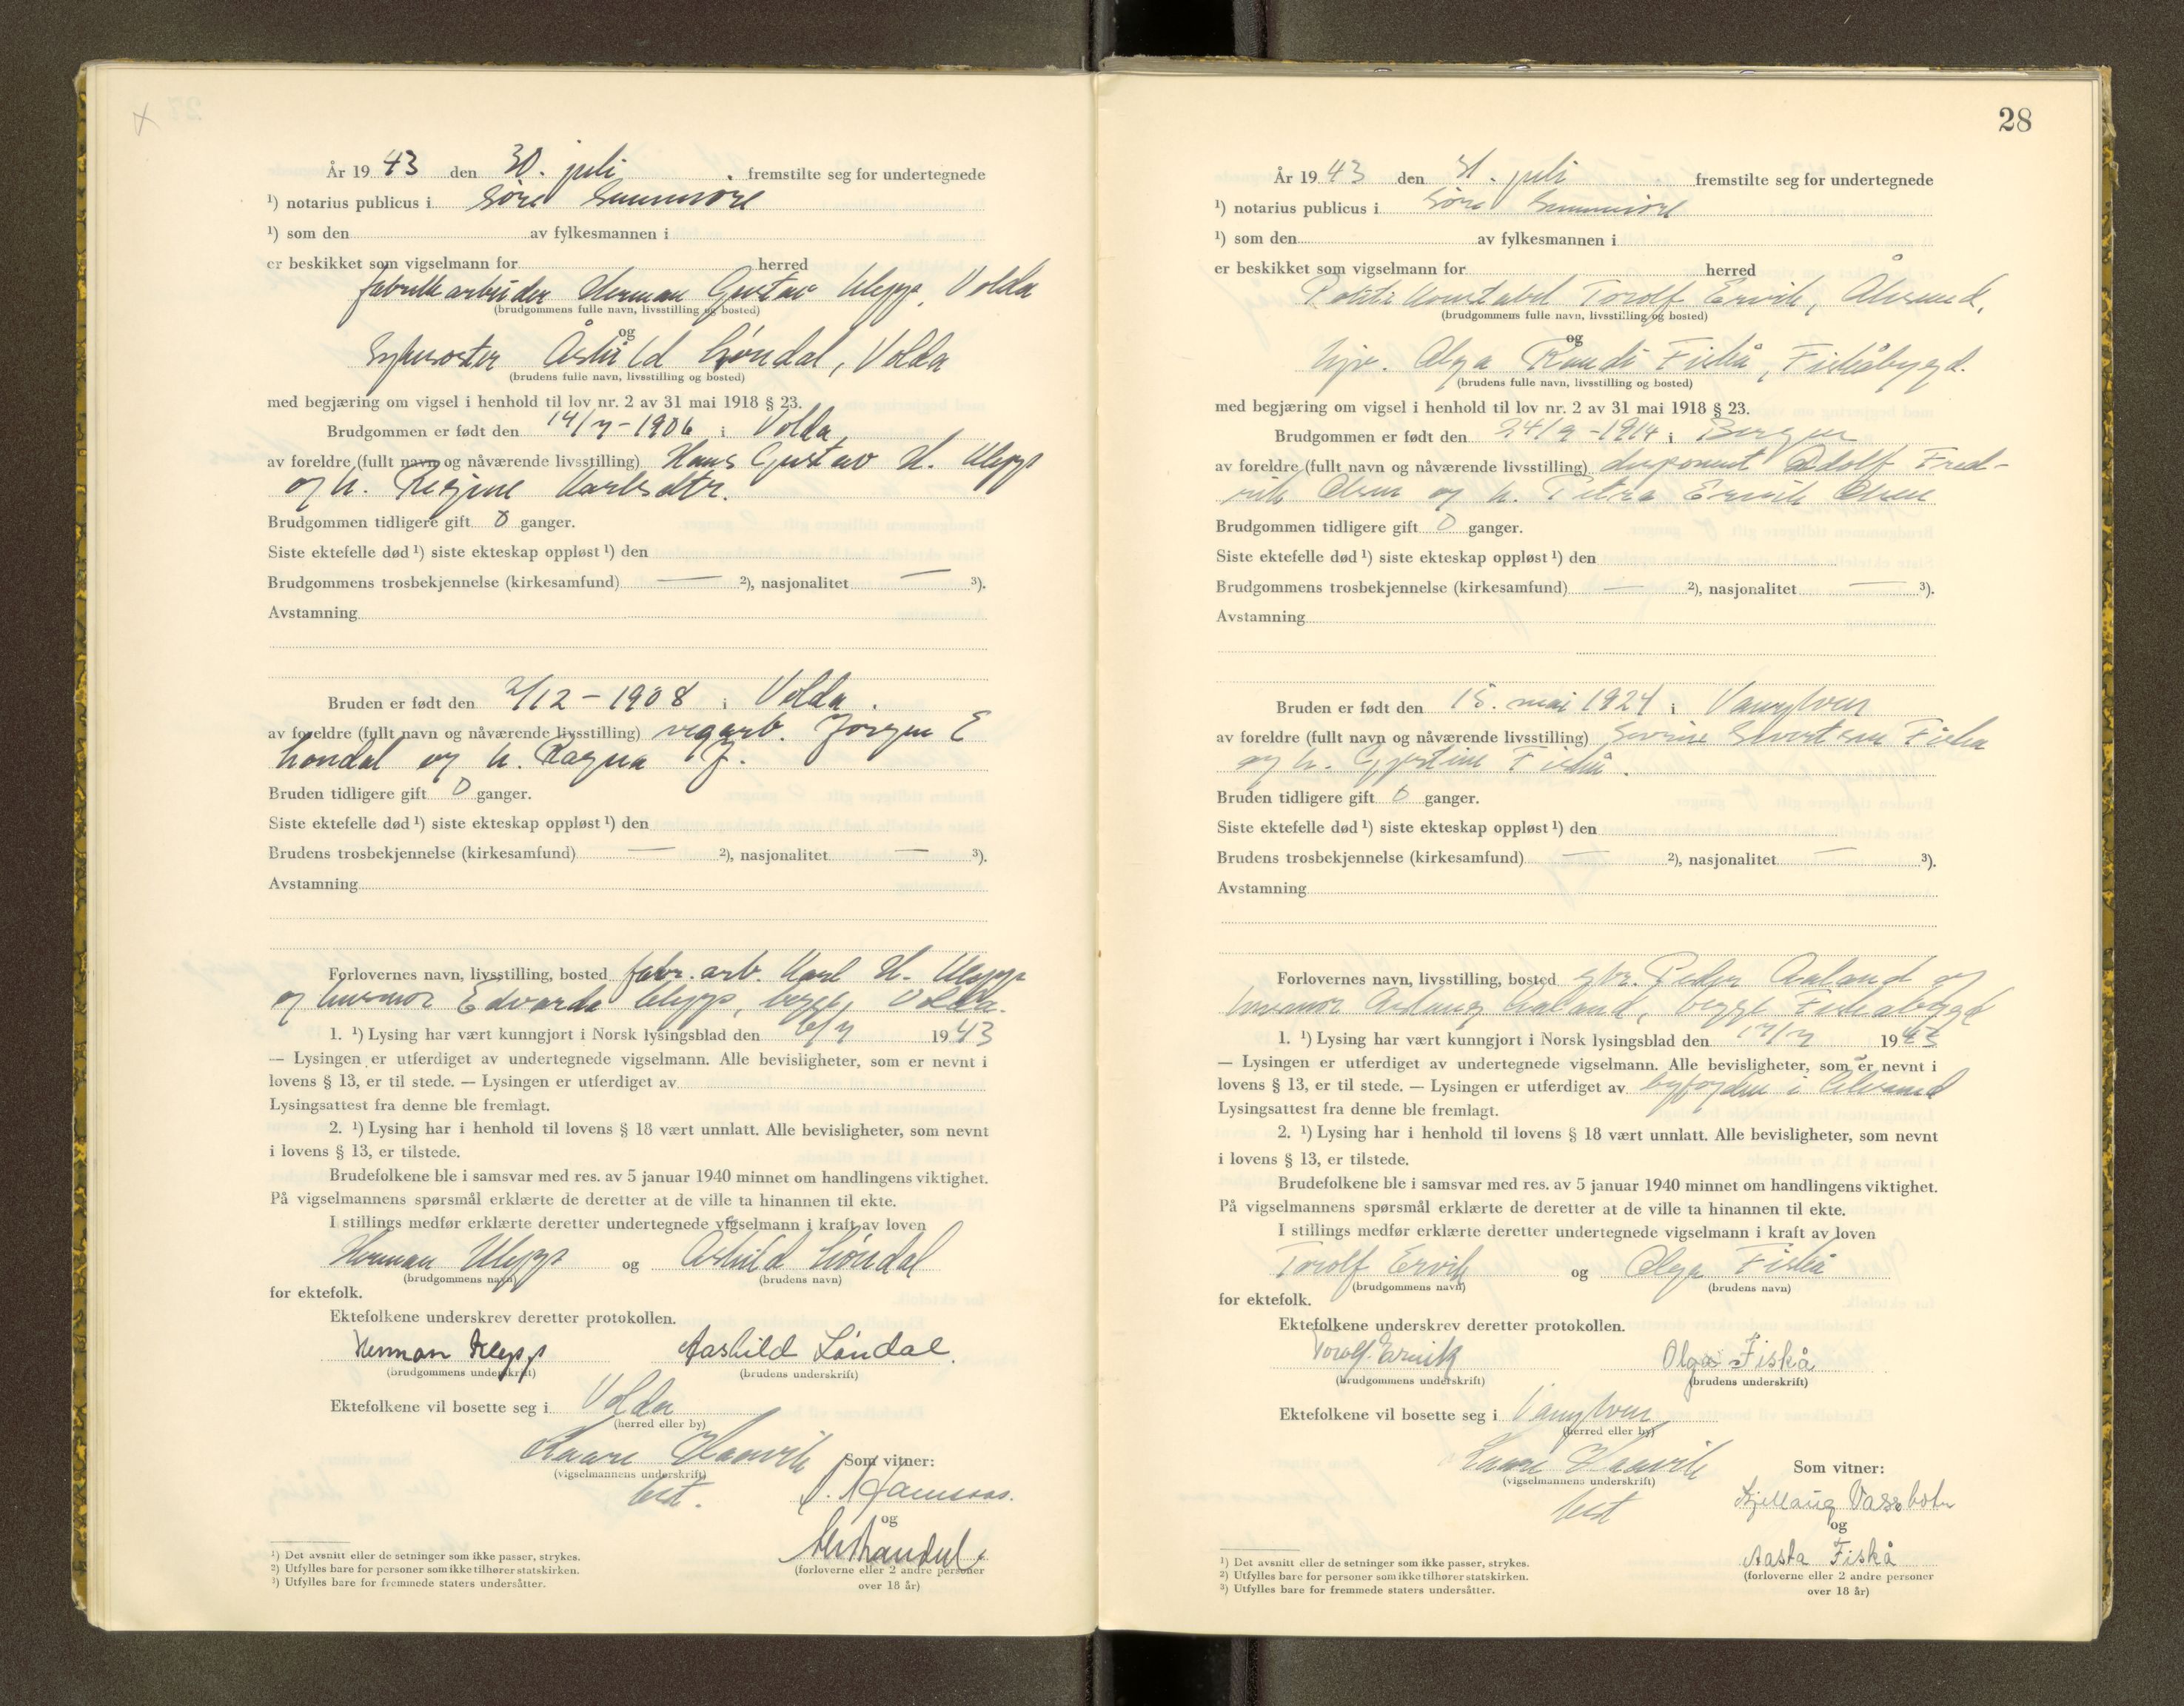 År 19 43 den 30. juli fremstilte seg for undertegnede
¹) notarius publicus i Søre Sunnmøre
¹) som den av fylkesmannen i
er beskikket som vigselmann for herred
fabrikkarbeider Herman Gustav Klepp, Volda
(brudgommens fulle navn, livsstilling og bosted)
og
Åshild Løndal, Volda
(brudens fulle navn, livsstilling og bosted)
med begjæring om vigsel i henhold til lov nr. 2 av 31 mai 1918 § 23.
Brudgommen er født den 14/7-1906 i Volda
av foreldre (fullt navn og nåværende livsstilling) Hans Gustav H. Klepp
og h. Regine Karlsdtr.
Brudgommen tidligere gift 0 ganger.
Siste ektefelle død ¹) siste ekteskap oppløst ¹) den
Brudgommens trosbekjennelse (kirkesamfund) — ²), nasjonalitet — ³).
Avstamning
Bruden er født den 2/12-1908 i Volda.
av foreldre (fullt navn og nåværende livsstilling) vegarb. Jørgen E
Løndal og h. Ragna J.
Bruden tidligere gift 0 ganger.
Siste ektefelle død ¹) siste ekteskap oppløst ¹) den
Brudens trosbekjennelse (kirkesamfund) — ²), nasjonalitet — ³).
Avstamning
Forlovernes navn, livsstilling, bosted fabr. arb. Karl H. Klepp
og husmor Edvarda Klepp, begge Volda.
1. ¹) Lysing har vært kunngjort i Norsk lysingsblad den 6/7 19 43
— Lysingen er utferdiget av undertegnede vigselmann. Alle bevisligheter, som er nevnt i
lovens § 13, er til stede. — Lysingen er utferdiget av
Lysingsattest fra denne ble fremlagt.
2. ¹) Lysing har i henhold til lovens § 18 vært unnlatt. Alle bevisligheter, som nevnt
i lovens § 13, er tilstede.
Brudefolkene ble i samsvar med res. av 5 januar 1940 minnet om handlingens viktighet.
På vigselmannens spørsmål erklærte de deretter at de ville ta hinannen til ekte.
I stillings medfør erklærte deretter undertegnede vigselmann i kraft av loven
Herman Klepp og Åshild Løndal
(brudgommens navn) (brudens navn)
for ektefolk.
Ektefolkene underskrev deretter protokollen.
Herman Klepp Aashild Löndal.
(brudgommens underskrift) (brudens underskrift)
Ektefolkene vil bosette seg i Volda
(herred eller by)
Kaare Haavik Som vitner:
(vigselmannens underskrift)
og
¹) Det avsnitt eller de setninger som ikke passer, strykes.
²) Utfylles bare for personer som ikke tilhører statskirken. (forloverne eller 2 andre personer
³) Utfylles bare for fremmede staters undersåtter. over 18 år)
28
År 19 43 den 31. juli fremstilte seg for undertegnede
¹) notarius publicus i Søre Sunnmøre
¹) som den av fylkesmannen i
er beskikket som vigselmann for herred
Politikonstabel Torolf Ervik, Ålesund,
(brudgommens fulle navn, livsstilling og bosted)
og
Olga Randi Fiskå, Fiskåbygd.
(brudens fulle navn, livsstilling og bosted)
med begjæring om vigsel i henhold til lov nr. 2 av 31 mai 1918 § 23.
Brudgommen er født den 24/9-1914 i Bergen
av foreldre (fullt navn og nåværende livsstilling) disponent Adolf Fred-
rik Olsen og h. Petra Ervik Olsen
Brudgommen tidligere gift 0 ganger.
Siste ektefelle død ¹) siste ekteskap oppløst ¹) den
Brudgommens trosbekjennelse (kirkesamfund) — ²), nasjonalitet — ³).
Avstamning
Bruden er født den 15. mai 1924 i Vanylven
av foreldre (fullt navn og nåværende livsstilling) Sivertsen Fiskå
og h. Gjertine Fiskå.
Bruden tidligere gift 0 ganger.
Siste ektefelle død ¹) siste ekteskap oppløst ¹) den
Brudens trosbekjennelse (kirkesamfund) — ²), nasjonalitet — ³).
Avstamning
Forlovernes navn, livsstilling, bosted gbr. Peder Aaland og
husmor Aaland, begge Fiskåbygd
1. ¹) Lysing har vært kunngjort i Norsk lysingsblad den 17/7 19 43
— Lysingen er utferdiget av undertegnede vigselmann. Alle bevisligheter, som er nevnt i
lovens § 13, er til stede. — Lysingen er utferdiget av byfogden i Ålesund
Lysingsattest fra denne ble fremlagt.
2. ¹) Lysing har i henhold til lovens § 18 vært unnlatt. Alle bevisligheter, som nevnt
i lovens § 13, er tilstede.
Brudefolkene ble i samsvar med res. av 5 januar 1940 minnet om handlingens viktighet.
På vigselmannens spørsmål erklærte de deretter at de ville ta hinannen til ekte.
I stillings medfør erklærte deretter undertegnede vigselmann i kraft av loven
Torolf Ervik og Olga Fiskå
(brudgommens navn) (brudens navn)
for ektefolk.
Ektefolkene underskrev deretter protokollen.
Torolf Ervik Olga Fiskå
(brudgommens underskrift) (brudens underskrift)
Ektefolkene vil bosette seg i Vanylven
(herred eller by)
Kaare Haavik Som vitner:
(vigselmannens underskrift)
Kjellaug Vassbotn
og
Aasta Fiskå
¹) Det avsnitt eller de setninger som ikke passer, strykes.
²) Utfylles bare for personer som ikke tilhører statskirken. (forloverne eller 2 andre personer
³) Utfylles bare for fremmede staters undersåtter. over 18 år)